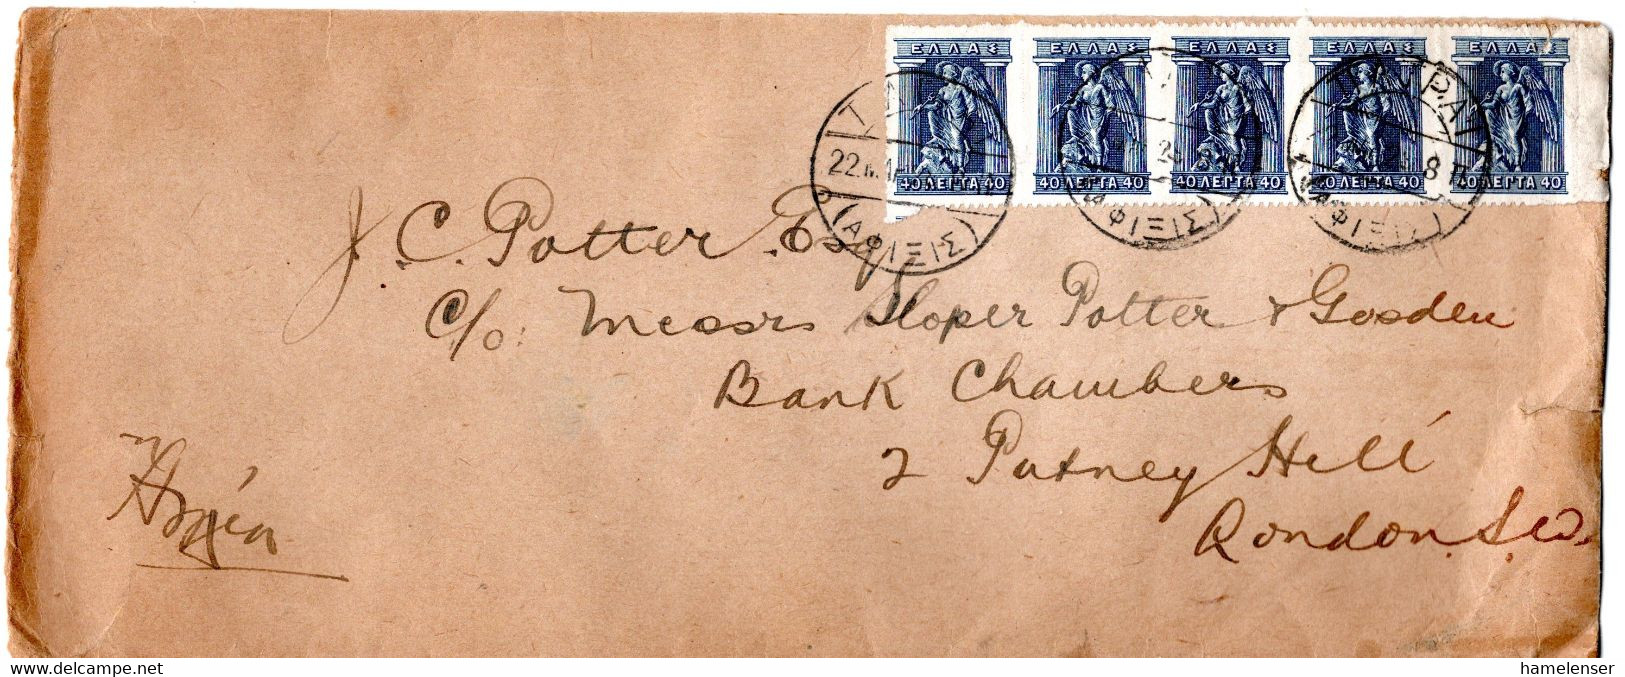 ΕΛΛΑΣ ΕΛΛΑΣ ΕΛΛΑΣ ΕΛΛΑΣ ΕΛΛΑΣ
40 ΛΕΠΤΑ 40 40 ΛΕΠΤΑ 40 40 ΛΕΠΤΑ 40 40 ΛΕΠΤΑ 40 40 ΛΕΠΤΑ 40
22
(ΑΦΙΞΙΣ)
ΑΦΙΞΙΣ)
8 Π
J. C. Potter Esq
c/o: Messrs Sloper Potter & Gosden
Bank Chambers
2 Putney Hill
London. S.W.
Αγγλία
delcampe.net
hamelenser